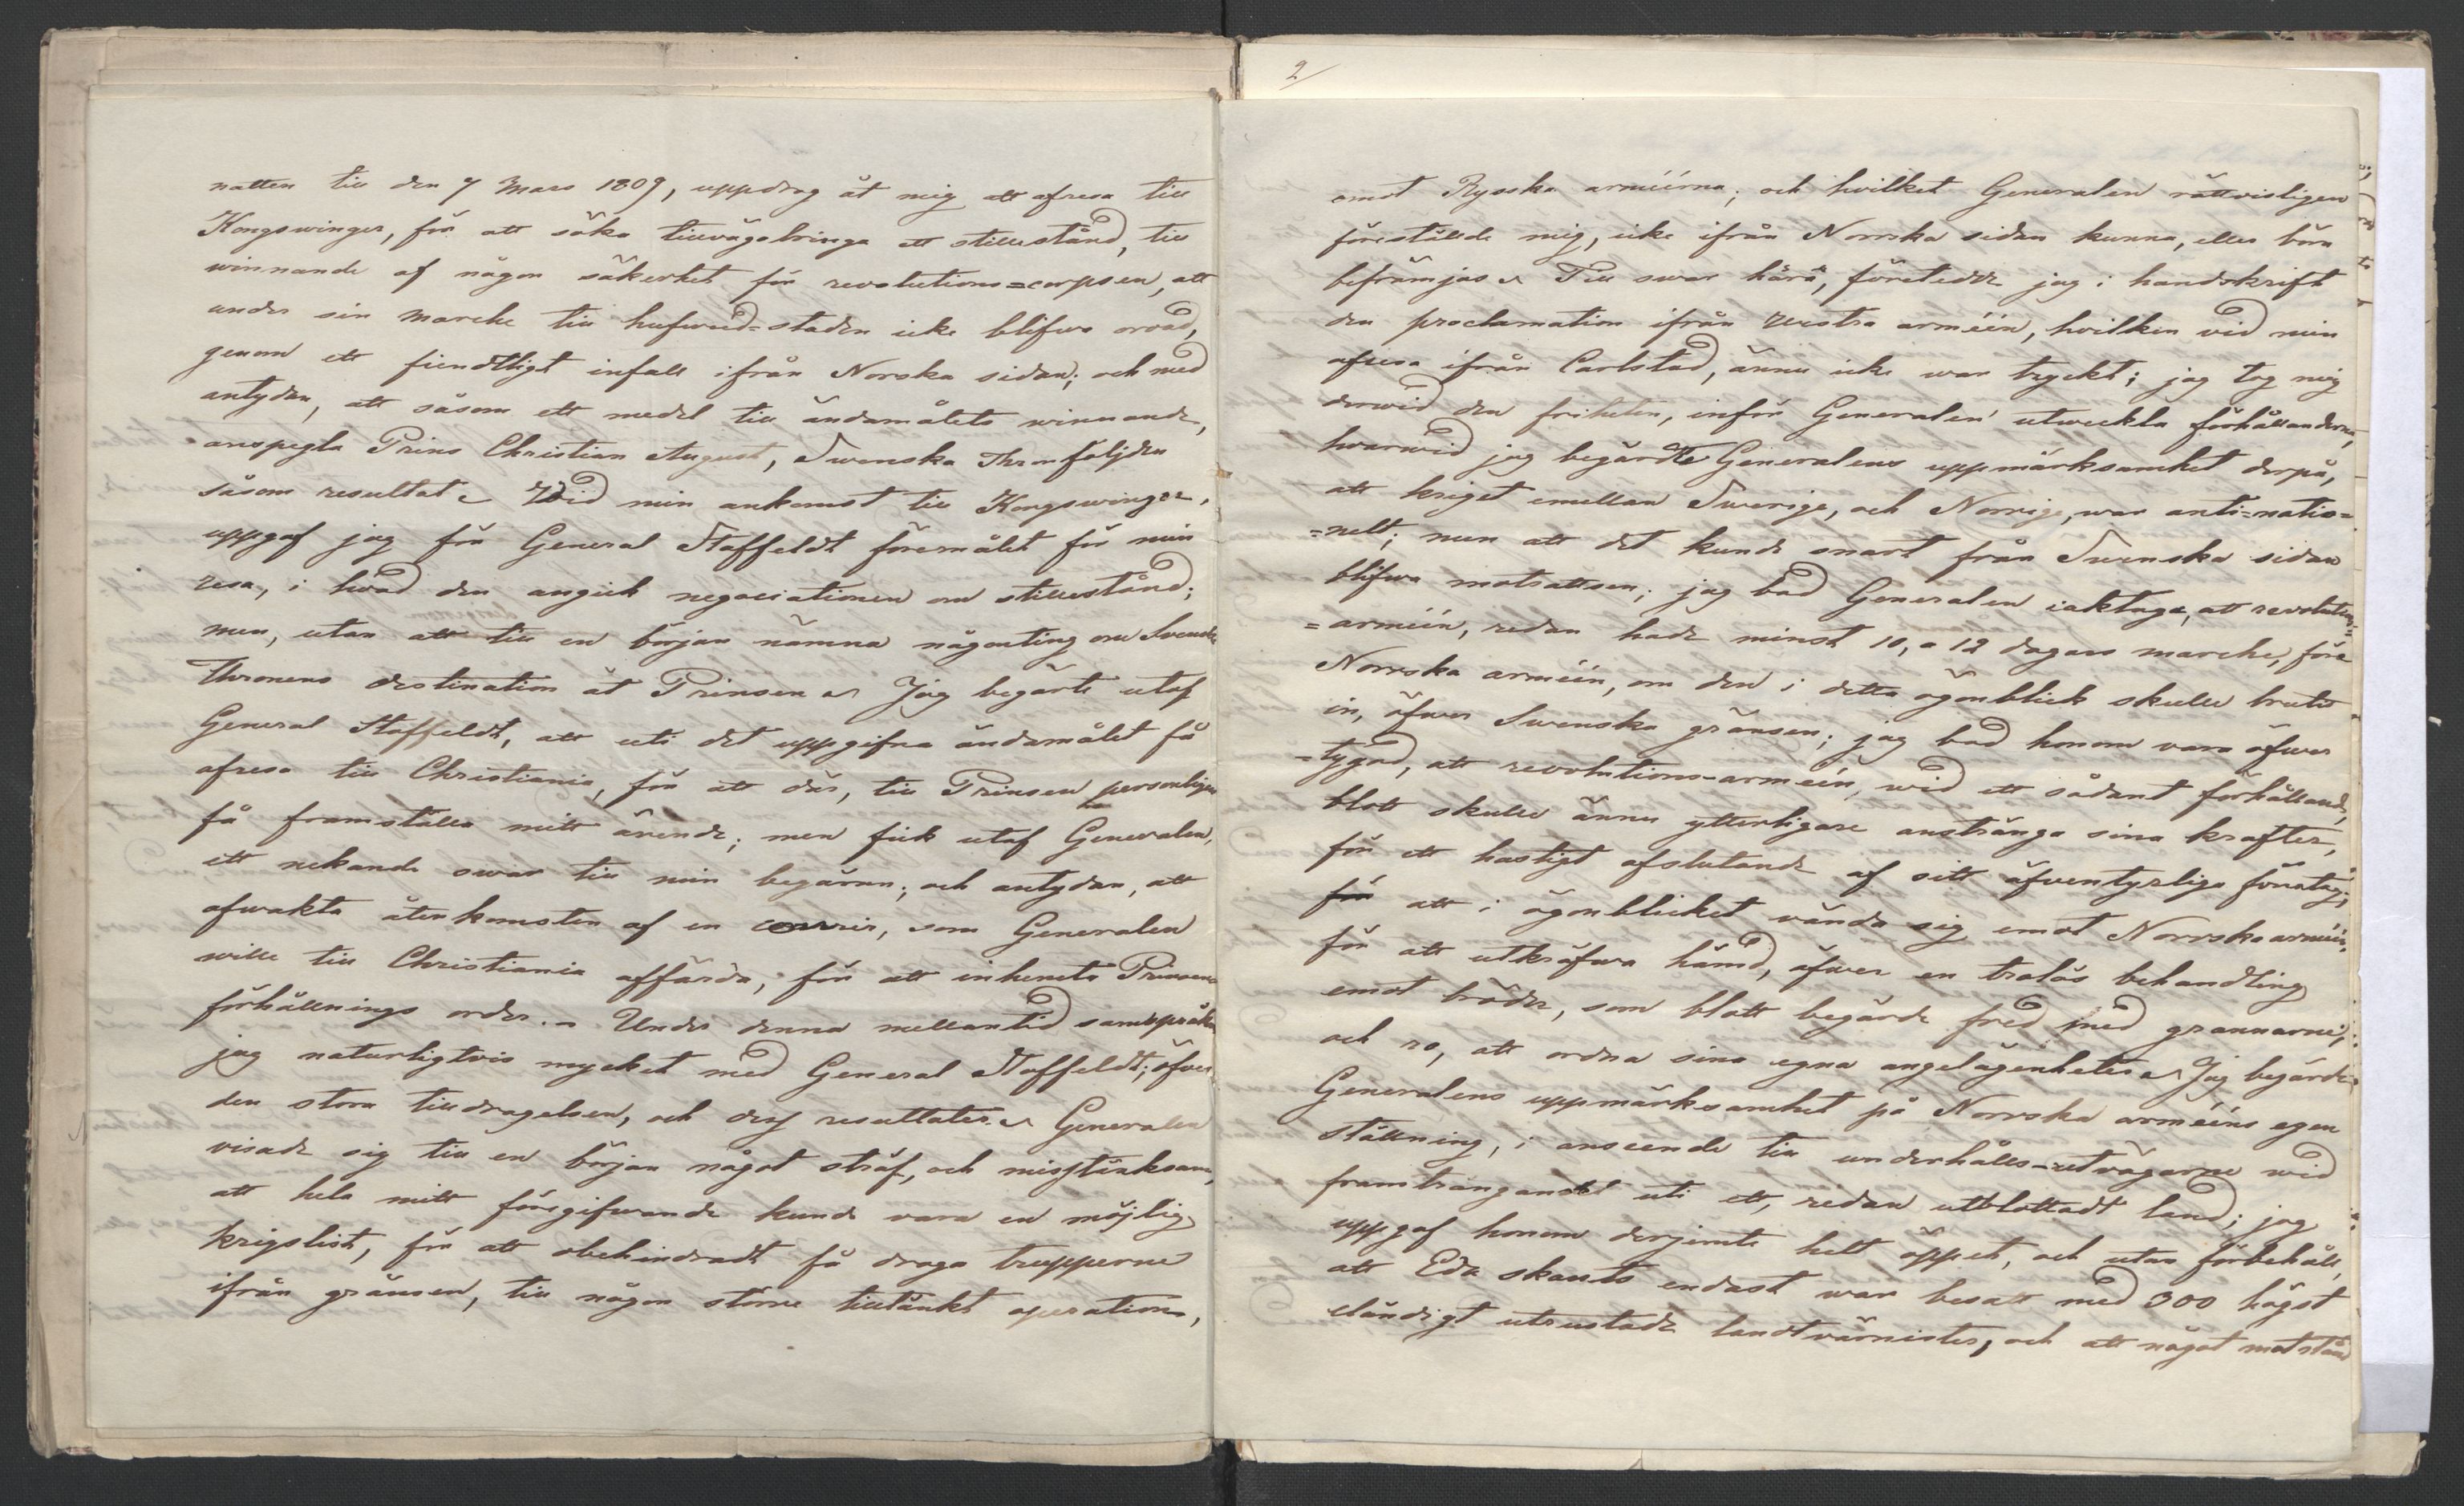 natten till den 7 Mars 1809, uppdrog åt mig att afresa till
Kongswinger, för att söka tillvägabringa ett stillestånd, till
winnande af någon säkerhet för revolutions=corpsen, att
under sin marche till hufwud=staden icke blifwa oroad,
genom ett fiendtligt infall ifrån Norska sidan; och med
antydan, att såsom ett medel till ändamålets winnande,
anspegla Prins Christian August, Swenska Thronföljden
såsom resultat. Wid min ankomst till Kongswinger,
uppgaf jag för General Staffeldt föremålet för min
resa, i hvad den angick negociationen om stillestånd;
men, utan att till en början nämna någonting om Svenska
Thronens destination åt Prinsen. Jag begärte utaf
General Staffeldt, att uti det uppgifna ändamålet få
afresa till Christiania, för att där, till Prinsen personligen
få framställa mitt ärende; men fick utaf Generalen,
ett nekande swar till min begäran; och antydan, att
afwakta återkomsten af en courrir, som Generalen
wille till Christiania affärda, för att inhemta Prinsens
förhållnings order. Under denna mellantid samspråkade
jag naturligtvis mycket med General Staffeldt; öfver
den stora tilldragelsen, och dess resultater. Generalen
visade sig till en början något sträf, och misstänksam,
att hela mitt föregifwande kunde vara en möjlig
krigslist, för att obehindradt få draga trupperne
ifrån gränsen, till någon större tilltänkt operation,
2/
emot Rysska arméerna; och hvilket Generalen rättvisligen
föreställde mig, icke ifrån Norrska sidan kunna, eller böra
befrämjas. Till swar härå, företedde jag i handskrift
den proclamation ifrån Westra arméen, hvilken vid min
afresa ifrån Carlstad, ännu icke war tryckt; jag tog mig
derwid den friheten, inför Generalen utweckla förhållanderna,
hvarwid jag begärdte Generalens uppmärksamhet derpå,
att kriget emellan Swerige, och Norrige, war anti=natio=
=nelt; men att det kunde snart från Swenska sidan
blifwa motsattsen; jag bad Generalen iakttaga, att revolutions
=arméen, redan hade minst 10, a 12 dagars marche, före
Norrska arméen, om den i detta ögonblick skulle bruta
in, öfwer Swenska gränsen; jag bad honom vara öfwer
=tygad, att revolutions-arméen, wid ett sådant förhållande,
blott skulle ännu ytterligare anstränga sina krafter,
för ett hastigt afslutande af sitt äfventyrliga företag;
för att i ögonblicket vända sig emot Norrska arméen,
för att utkräfwa hämd, öfwer en trolös behandling
emot bröder, som blott begärde fred med grannarne,
och ro, att ordna sina egna angelägenheter. Jag begärde
Generalens uppmärksamhet på Norrska arméens egen
ställning, i anseende till underhålls-utvägarne wid
framträngandet uti ett, redan utblottadt land; jag
uppgaf honom derjemte helt öppet, och utan förbehåll,
att Eda skants endast war besatt med 300 högst
eländigt utrustade landtvärnister, och att något motstånd